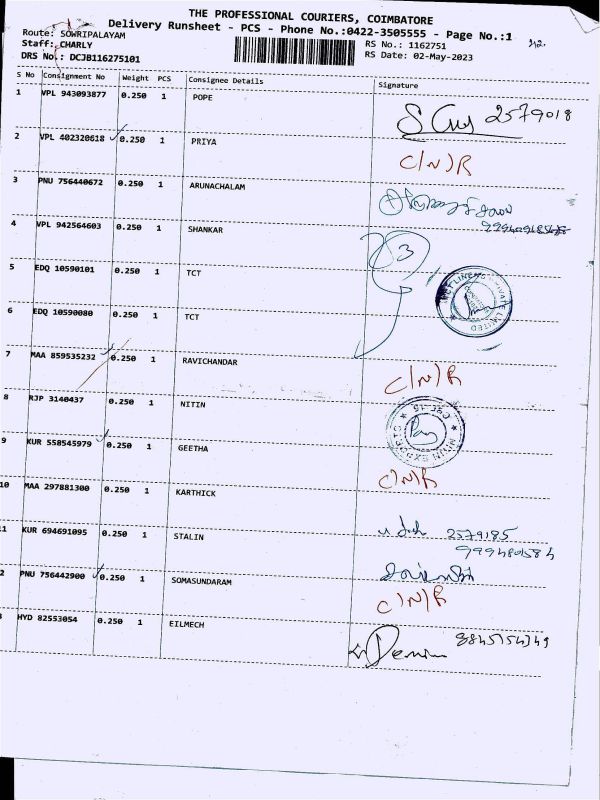 THE PROFESSIONAL COURIERS, COIMBATORE
Delivery Runsheet - PCS - Phone No.:0422-3505555 - Page No.:1
Route: SOWRIPALAYAM
Staff: CHARLY
RS No.: 1162751
DRS No.: DCJB116275101
RS Date: 02-May-2023
S No Consignment No Weight PCS Consignee Details Signature
1 VPL 943093877 0.250 1 POPE
2579018
2 VPL 402320618 0.250 1 PRIYA
C/N/R
3 PNU 756440672 0.250 1 ARUNACHALAM
4 VPL 942564603 0.250 1 SHANKAR
5 EDQ 10590101 0.250 1 TCT
6 EDQ 10590080 0.250 1 TCT
7 MAA 859535232 0.250 1 RAVICHANDAR
C/N/R
8 RJP 3140437 0.250 1 NITIN
9 KUR 558545979 0.250 1 GEETHA
C/N/R
10 MAA 297881300 0.250 1 KARTHICK
2579185
1 KUR 694691095 0.250 1 STALIN
2 PNU 756442900 0.250 1 SOMASUNDARAM
C/N/R
HYD 82553054 0.250 1 EILMECH